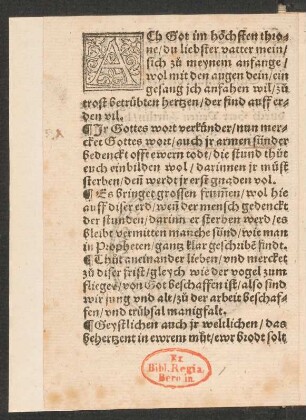 ACh Got im höchsten thro-
ne/du liebster vatter mein/
sich zů meynem anfange/
wol mit den augen dein/ein
gesang jch anfahen wil/zů
trost betrübten hertzen/der sind auff er-
den vil.
¶Ir Gottes wort verkünder/nun mer-
cket Gottes wort/auch jr armen sünder
bedenckt offt ewern todt/die stund thůt
euch einbilden wol/darinnen jr müst
sterben/deñ werd jr erst gnaden vol.
¶Es bringet grossen frummen/wol hie
auff diser erd/weñ der mensch gedenckt
der stunden/darinn er sterben werd/es
bleibt vermitten manche sünd/wie man
in Propheten/gantz klar geschribē findt.
¶Thůt aneinander lieben/vnd mercket
zů diser frist/gleych wie der vogel zum
fliegē/von Got beschaffen ist/also sind
wir jung vnd alt/zů der arbeit beschaf-
fen/vnd trübsal manigfalt.
¶Geystlichen auch jr weltlichen/das
behertzent in ewrem můt/ewr brodt solt
Ex
Bibl. Regia
Berolin.